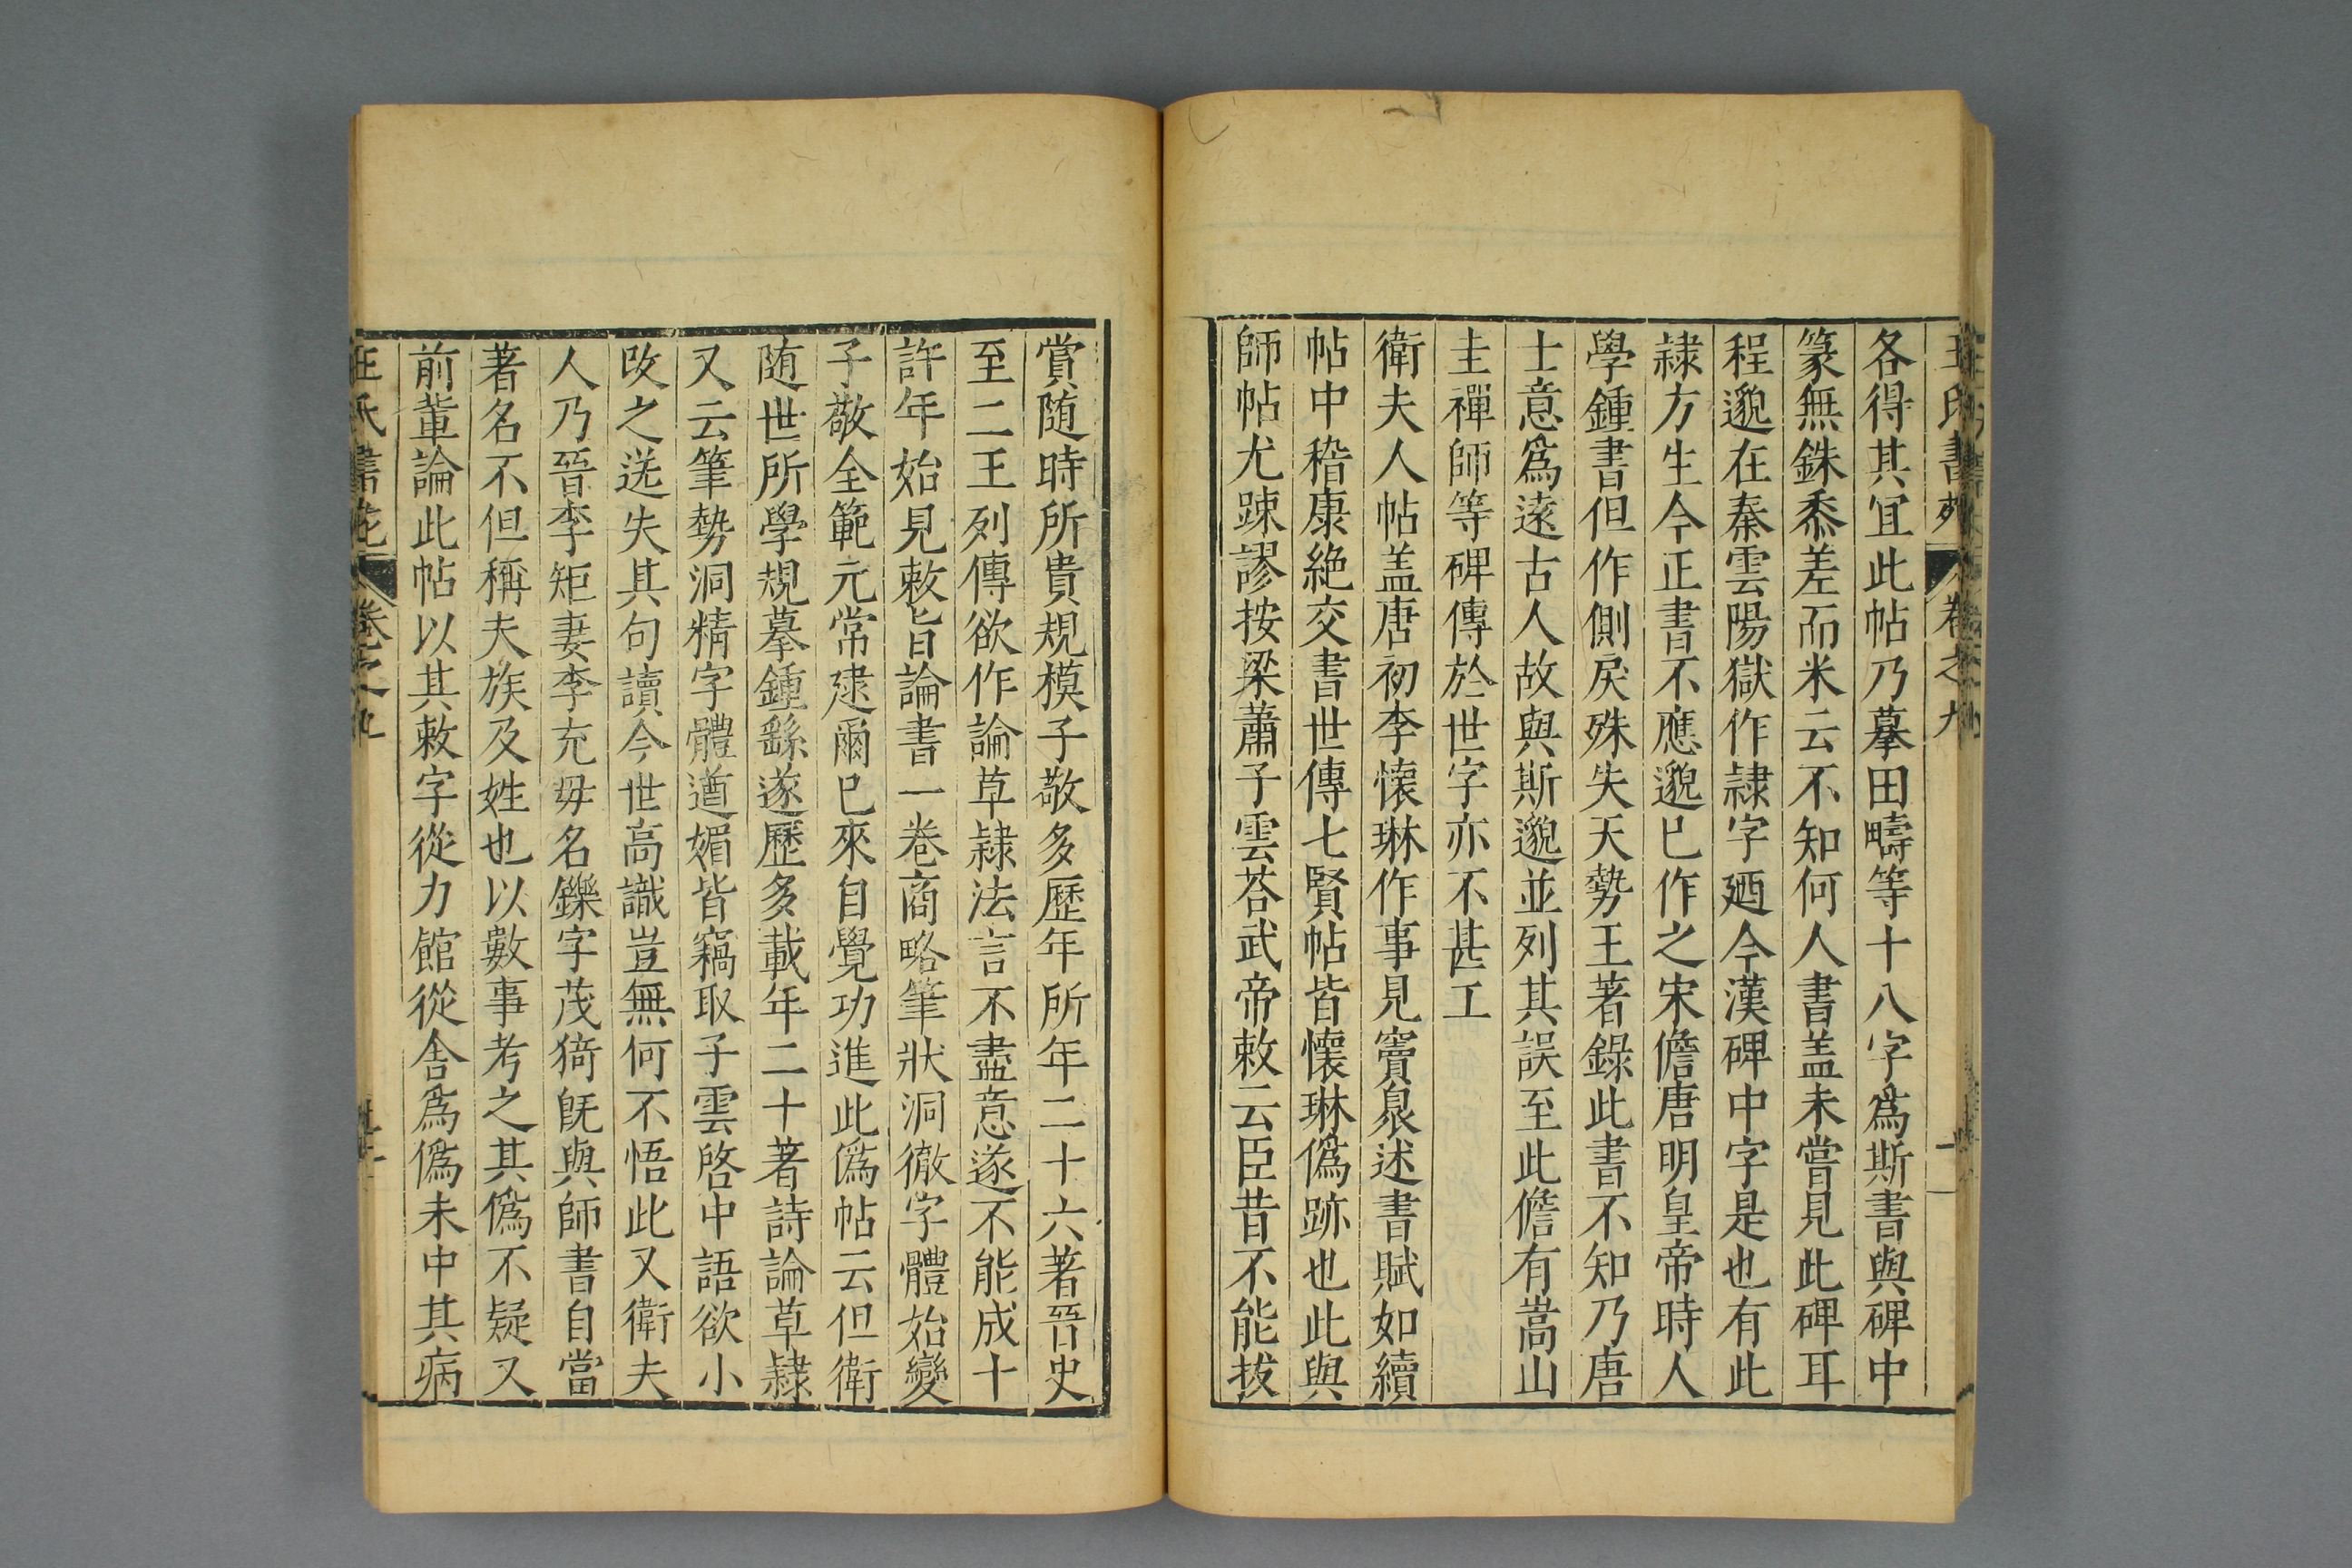 各得其宜此帖乃摹田疇等十八字爲斯書與碑中
篆無銖黍差而米云不知何人書盖未嘗見此碑耳
程邈在秦雲陽獄作隷字廼今漢碑中字是也有此
隷方生今正書不應邈已作之宋儋唐明皇帝時人
學鍾書但作側戾殊失天勢王著錄此書不知乃唐
士意爲遠古人故與斯邈並列其誤至此儋有嵩山
圭禪師等碑傳於世字亦不甚工
衛夫人帖盖唐初李懷琳作事見竇臮述書賦如續
帖中稽康絶交書世傳七賢帖皆懷琳僞跡也此與
師帖尤踈謬按梁蕭子雲荅武帝敕云臣昔不能拔
賞随時所貴規模子敬多歷年所年二十六著晉史
至二王列傳欲作論草隸法言不盡意遂不能成十
許年始見敕旨論書一巻商略筆狀洞徹字體始變
子敬全範元常逮爾已來自覺功進此僞帖云但衛
随世所學規摹鍾繇遂歷多載年二十著詩論草隸
又云筆勢洞精字體遒媚皆竊取子雲啓中語欲小
改之送失其句讀今世高識豈無何不悟此又衛夫
人乃晉李矩妻李充毋名鑠字茂猗旣與師書自當
著名不但稱夫族及姓也以數事考之其僞不疑又
前軰論此帖以其敕字從力館從舍爲僞未中其病
王氏書苑 卷之九